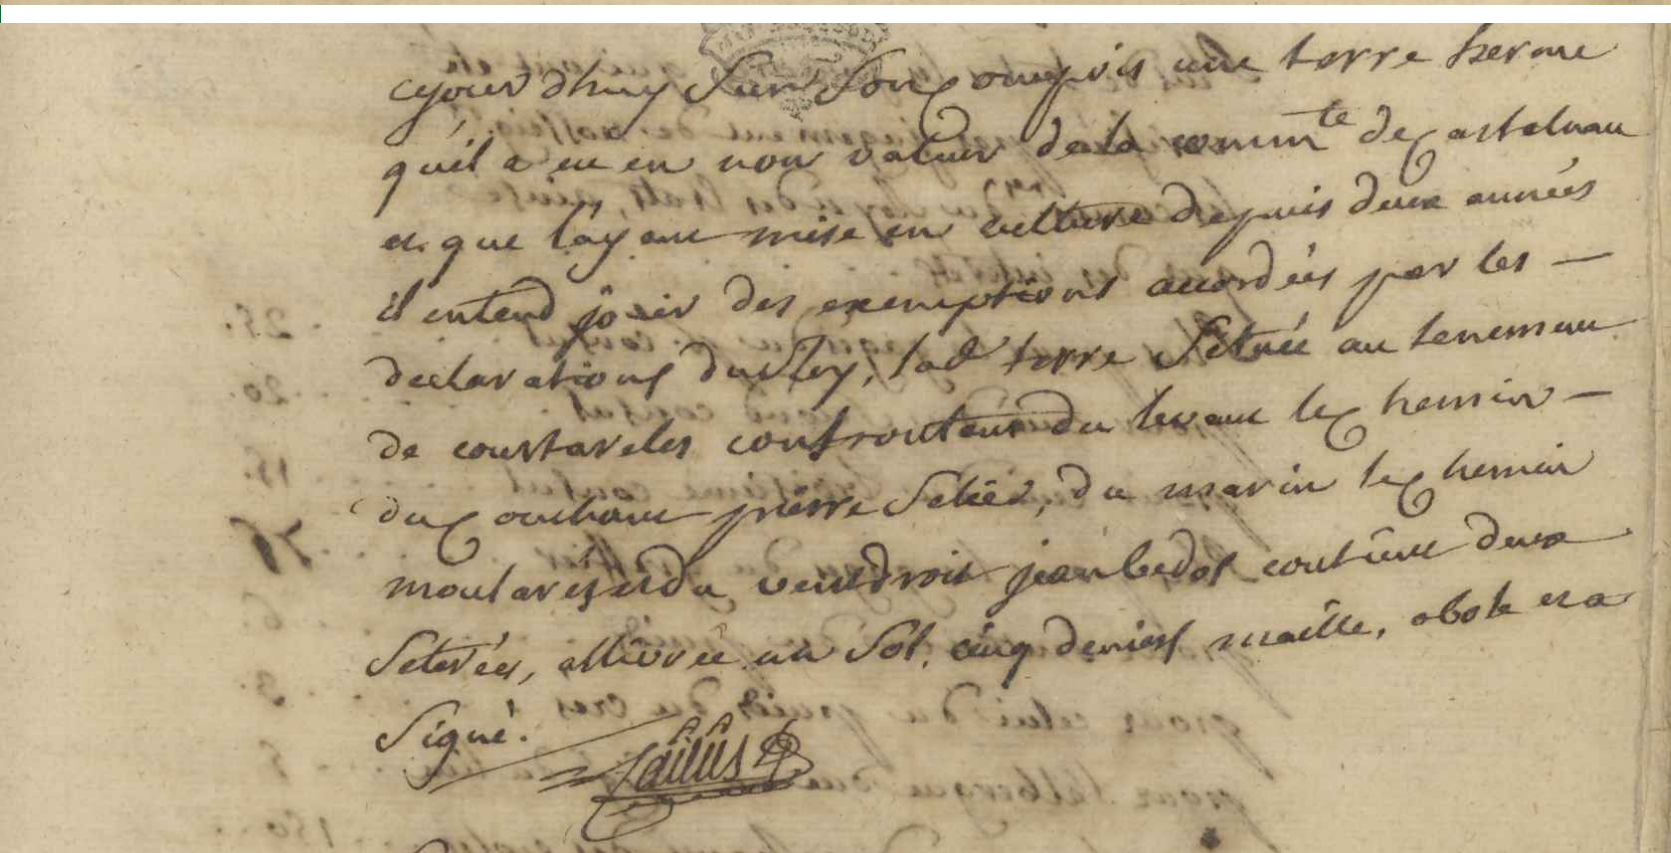 cejourdhuy sur son Compris une terre herme
qu'il a eu en non valeur de la commte de Castelnau
et que l'ayant mise en culture depuis deux années
il entend joüir des exemptions accordées par les —
declarations du Roy, lad terre Scituée au tenement
de courtareles confrontant du levant le Chemin —
du Couchant pierre du marin le Chemin
moulares et du vent droit jean bedos contient deux
Seterées, allivrée un Sol, cinq deniers maille, obole et a
Signé.